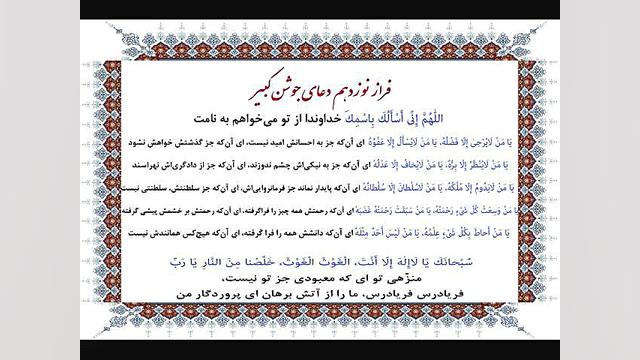 فراز نوزدهم دعای جوشن کبیر
اللّٰهُمَّ إِنِّی أَسْأَلُكَ بِاسْمِكَ خداوندا از تو می‌خواهم به نامت
یَا مَنْ لَایُرْجىٰ إِلّا فَضْلُهُ، یَا مَنْ لَایُسْأَلُ إِلّا عَفْوُهُ ای آن‌که جز به احسانش امید نیست، ای آن‌که جز گذشتش خواهش نشود
یَا مَنْ لَایُنْظَرُ إِلّا بِرُّهُ، یَا مَنْ لَایُخافُ إِلّا عَدْلُهُ ای آن‌که جز به نیکی‌اش چشم ندوزند، ای آن‌که جز از دادگری‌اش نهراسند
یَا مَنْ لَایَدُومُ إِلّا مُلْكُهُ، یَا مَنْ لَاسُلْطانَ إِلّا سُلْطانُهُ ای آن‌که پایدار نماند جز فرمانروایی‌اش، ای آن‌که جز سلطنتش، سلطنتی نیست
یَا مَنْ وَسِعَتْ كُلَّ شَیْءٍ رَحْمَتُهُ، یَا مَنْ سَبَقَتْ رَحْمَتُهُ غَضَبَهُ ای آن‌که رحمتش همه چیز را فراگرفته، ای آن‌که رحمتش بر خشمش پیشی گرفته
یَا مَنْ أَحاطَ بِكُلِّ شَیْءٍ عِلْمُهُ، یَا مَنْ لَیْسَ أَحَدٌ مِثْلَهُ ای آن‌که دانشش همه را فرا گرفته، ای آن‌که هیچ‌کس همانندش نیست
سُبْحانَكَ یَا لَاإِلٰهَ إِلّا أَنْتَ، الْغَوْثَ الْغَوْثَ، خَلِّصْنا مِنَ النَّارِ یَا رَبِّ
منزّهی تو ای که معبودی جز تو نیست،
فریادرس فریادرس، ما را از آتش برهان ای پروردگار من